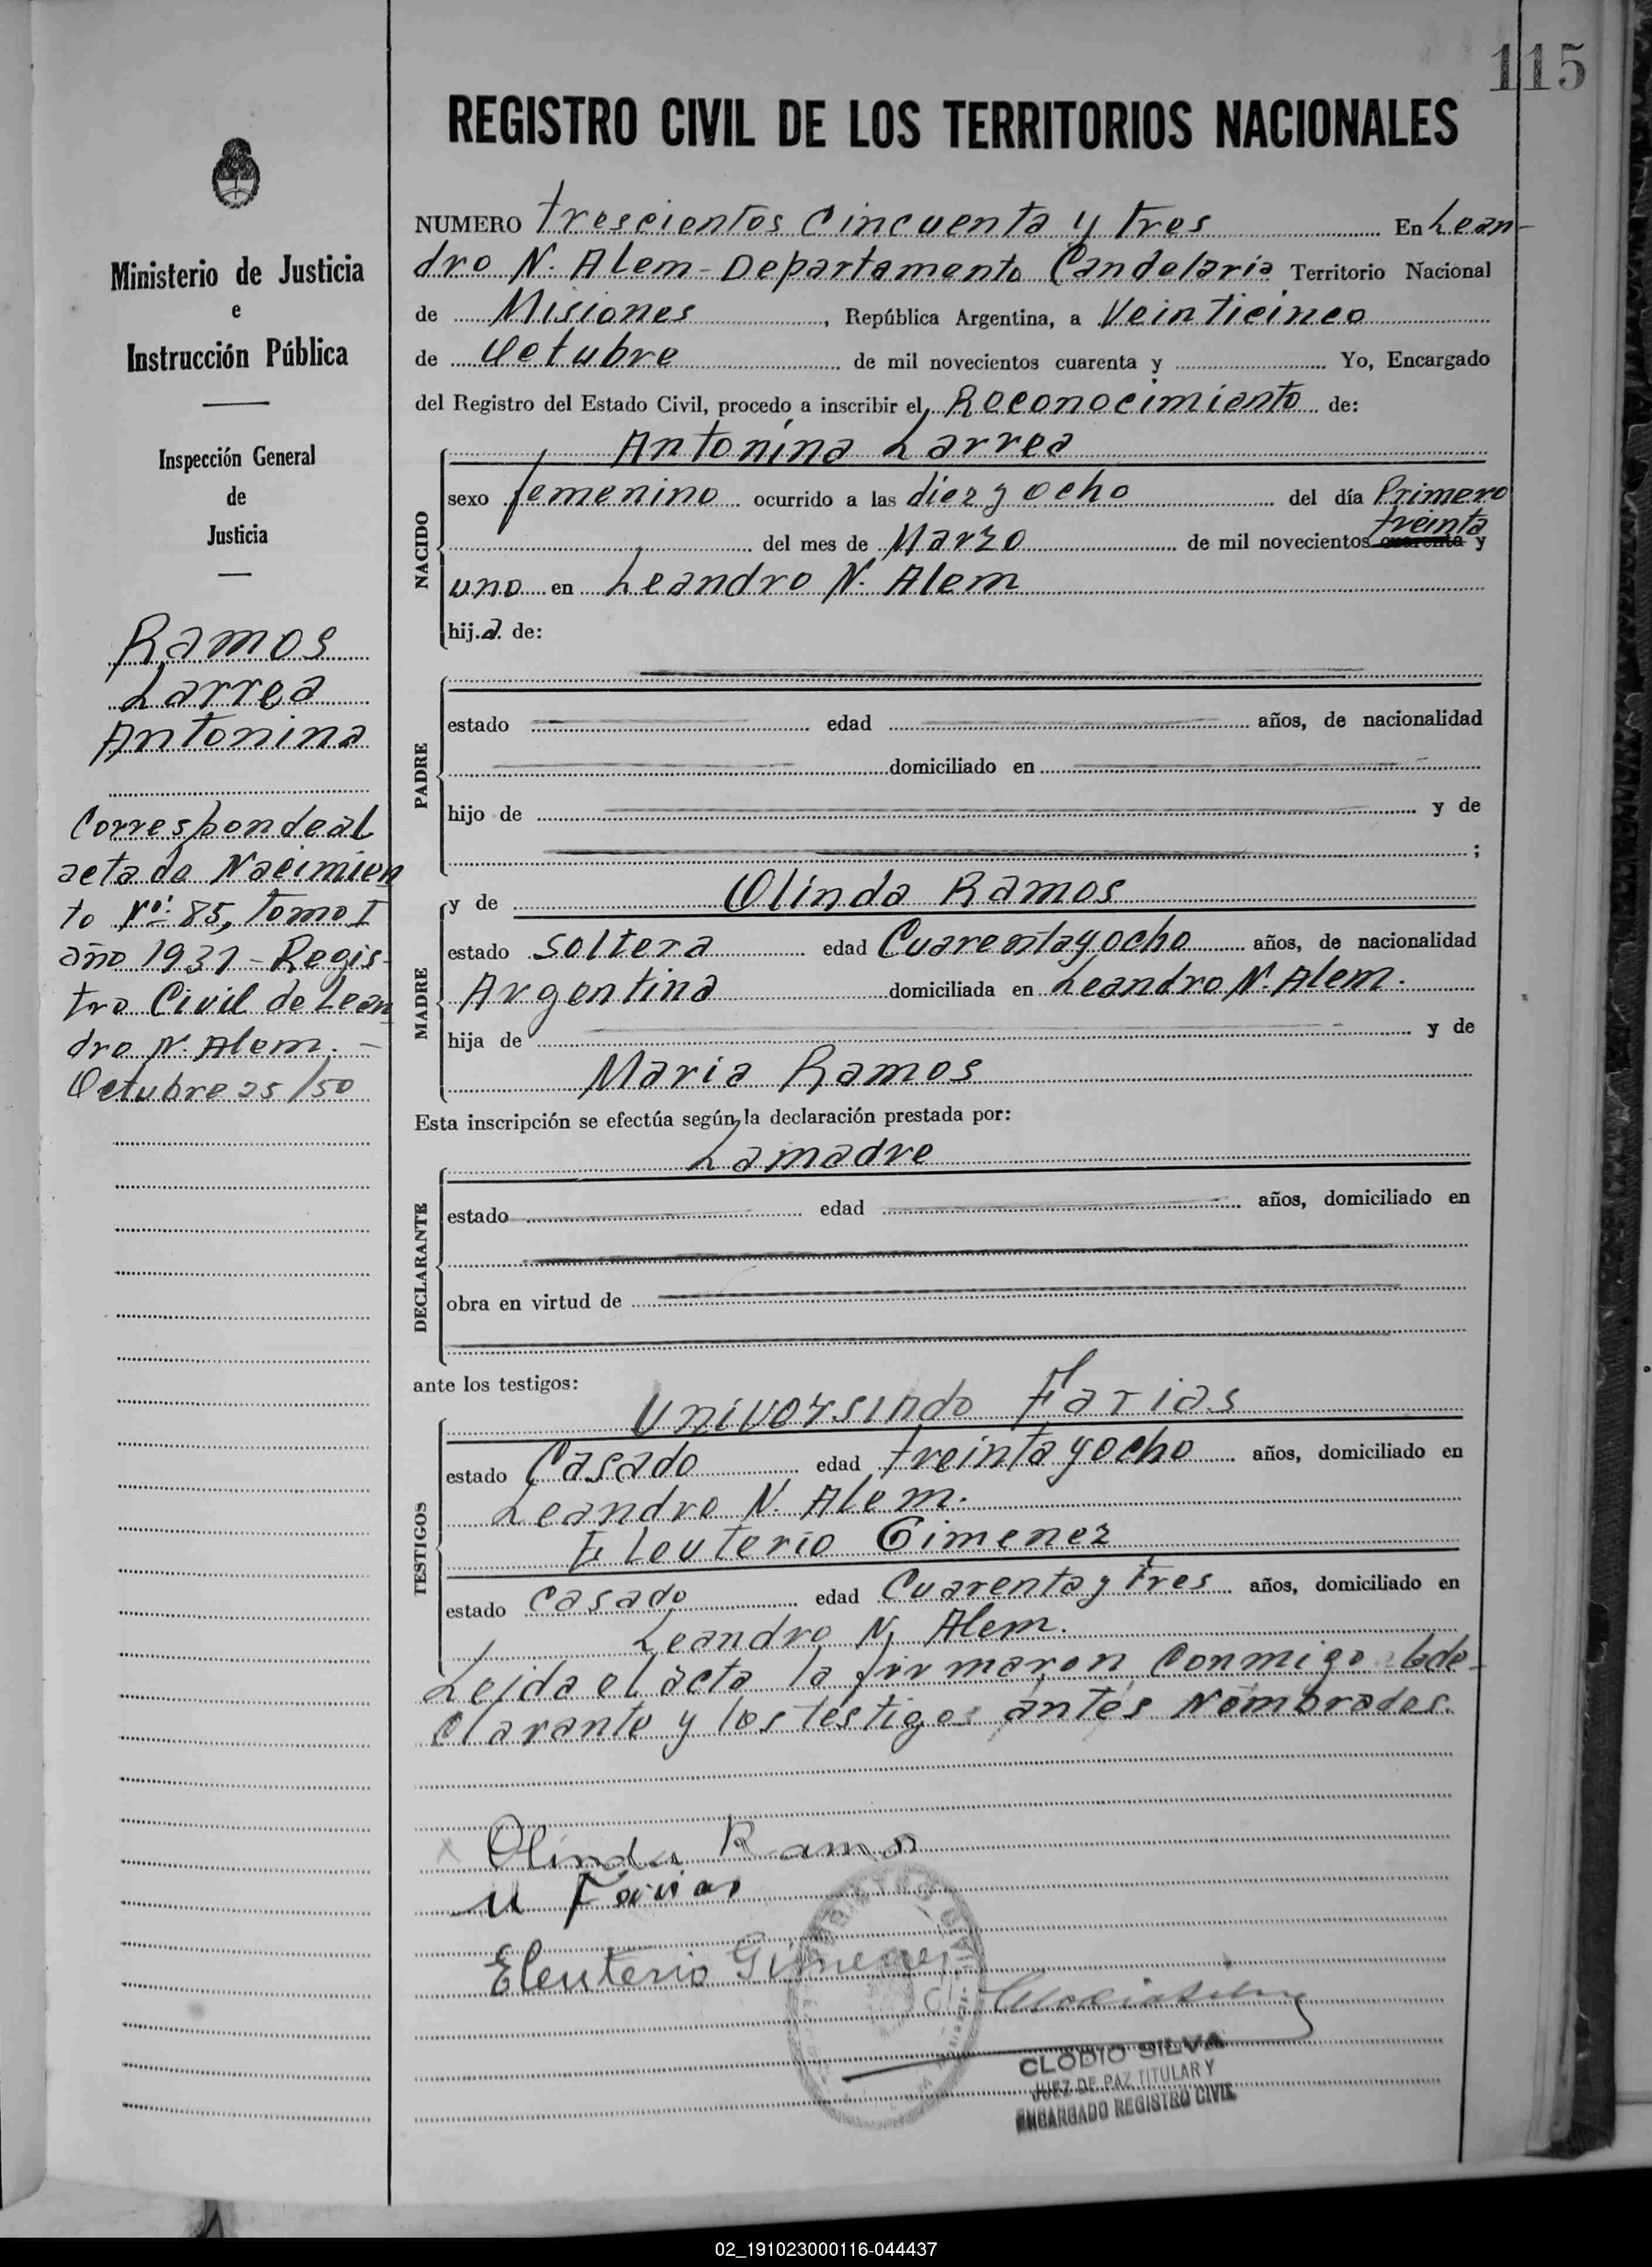 115
REGISTRO CIVIL DE LOS TERRITORIOS NACIONALES
Ministerio de Justicia
e
Instrucción Pública
Inspección General
de
Justicia
Ramos
Larrea
Antonina
Corresponde al
acta de Nacimien
to Nº: 85, tomo I
año 1931 - Regis-
tro Civil de Lean
dro N. Alem. -
Octubre 25/50
NUMERO trescientos Cincuenta y tres En Lean-
dro N. Alem - Departamento Candelaria Territorio Nacional
de Misiones, República Argentina, a Veinticinco
de Octubre de mil novecientos cuarenta y Yo, Encargado
del Registro del Estado Civil, procedo a inscribir el Reconocimiento de:
Antonina Larrea
NACIDO
sexo femenino ocurrido a las diez y ocho del día Primero
treinta
del mes de Marzo de mil novecientos cuarenta y
uno en Leandro N. Alem
hija de:
PADRE
estado edad años, de nacionalidad
domiciliado en
hijo de y de
;
MADRE
y de Olinda Ramos
estado soltera edad Cuarenta y ocho años, de nacionalidad
Argentina domiciliada en Leandro N. Alem.
hija de y de
Maria Ramos
Esta inscripción se efectúa según la declaración prestada por:
La madre
DECLARANTE
estado edad años, domiciliado en
obra en virtud de
ante los testigos:
Universindo Farias
TESTIGOS
estado Casado edad treinta y ocho años, domiciliado en
Leandro N. Alem.
Eleuterio Gimenez
estado Casado edad Cuarenta y tres años, domiciliado en
Leandro N. Alem.
Leida el acta la firmaron Conmigo la de-
clarante y los testigos antes Nombrados.
Olinda Ramos
U Farias
Eleuterio Gimenez
CLODIO SILVA
JUEZ DE PAZ TITULAR Y
ENCARGADO REGISTRO CIVIL
02_191023000116-044437